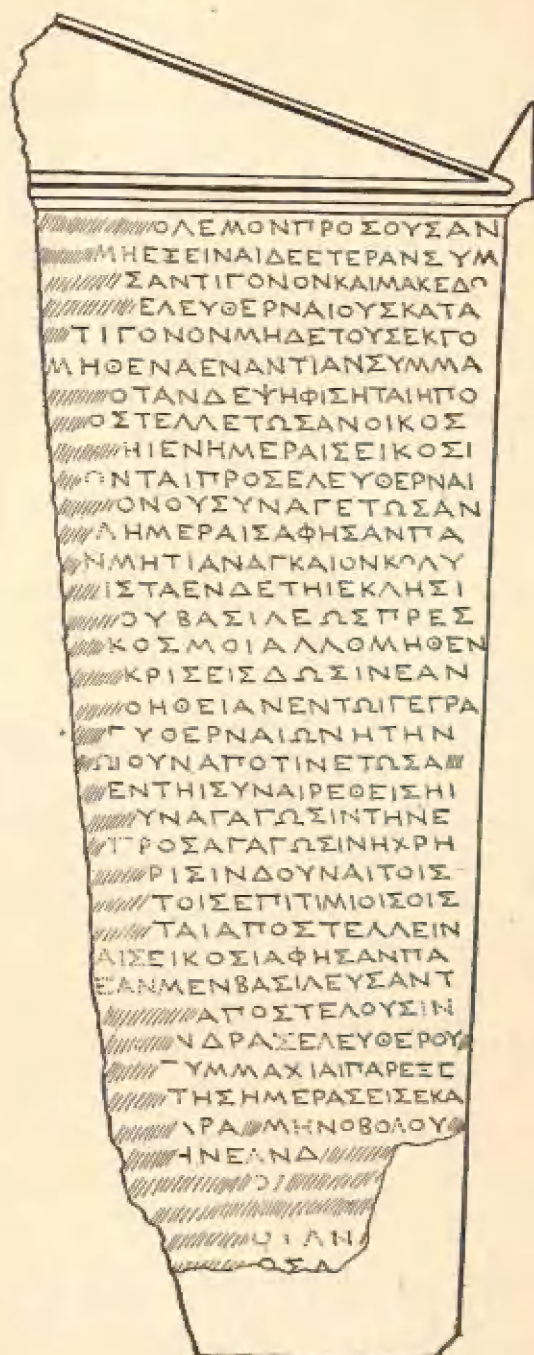 ΟΛΕΜΟΝΠΡΟΣΟΥΣΑΝ
ΜΗΕΣΕΙΝΑΙΔΕΕΤΕΡΑΝΣΥΜ
ΣΑΝΤΙΓΟΝΟΝΚΑΙΜΑΚΕΔΟ
ΕΛΕΥΘΕΡΝΑΙΟΥΣΚΑΤΑ
ΤΙΓΟΝΟΝΜΗΔΕΤΟΥΣΕΚΓΟ
ΜΗΘΕΝΑΕΝΑΝΤΙΑΝΣΥΜΜΑ
ΟΤΑΝΔΕΨΗΦΙΣΗΤΑΙΗΠΟ
ΟΣΤΕΛΛΕΤΩΣΑΝΟΙΚΟΣ
ΗΙΕΝΗΜΕΡΑΙΣΕΙΚΟΣΙ
ΟΝΤΑΙΠΡΟΣΕΛΕΥΘΕΡΝΑΙ
ΟΝΟΥΣΥΝΑΓΕΤΩΣΑΝ
ΛΗΜΕΡΑΙΣΑΦΗΣΑΝΠΑ
ΝΜΗΤΙΑΝΑΓΚΑΙΟΝΚΟΛΥ
ΙΣΤΑΕΝΔΕΤΗΙΕΚΛΗΣΙ
ΟΥΒΑΣΙΛΕΩΣΠΡΕΣ
ΚΟΣΜΟΙΑΛΛΟΜΗΘΕΝ
ΚΡΙΣΕΙΣΔΩΣΙΝΕΑΝ
ΟΗΘΕΙΑΝΕΝΤΩΙΓΕΓΡΑ
ΥΘΕΡΝΑΙΩΝΗΤΗΝ
ΩΙΟΥΝΑΠΟΤΙΝΕΤΩΣΑ
ΕΝΤΗΙΣΥΝΑΙΡΕΘΕΙΣΗΙ
ΥΝΑΓΑΓΩΣΙΝΤΗΝΕ
ΠΡΟΣΑΓΑΓΩΣΙΝΗΧΡΗ
ΡΙΣΙΝΔΟΥΝΑΙΤΟΙΣ
ΤΟΙΣΕΠΙΤΙΜΙΟΙΣΟΙΣ
ΤΑΙΑΠΟΣΤΕΛΛΕΙΝ
ΑΙΣΕΙΚΟΣΙΑΦΗΣΑΝΠΑ
ΕΑΝΜΕΝΒΑΣΙΛΕΥΣΑΝΤ
ΑΠΟΣΤΕΛΟΥΣΙΝ
ΝΔΡΑΣΕΛΕΥΘΕΡΟΥ
ΥΜΜΑΧΙΑΙΠΑΡΕΞΕ
ΤΗΣΗΜΕΡΑΣΕΙΣΕΚΑ
ΡΑ ΜΗΝΟΒΟΛΟΥ
ΗΝΕΑΝΔ
ΟΙ
ΟΙΑΝ
ΟΣΑ